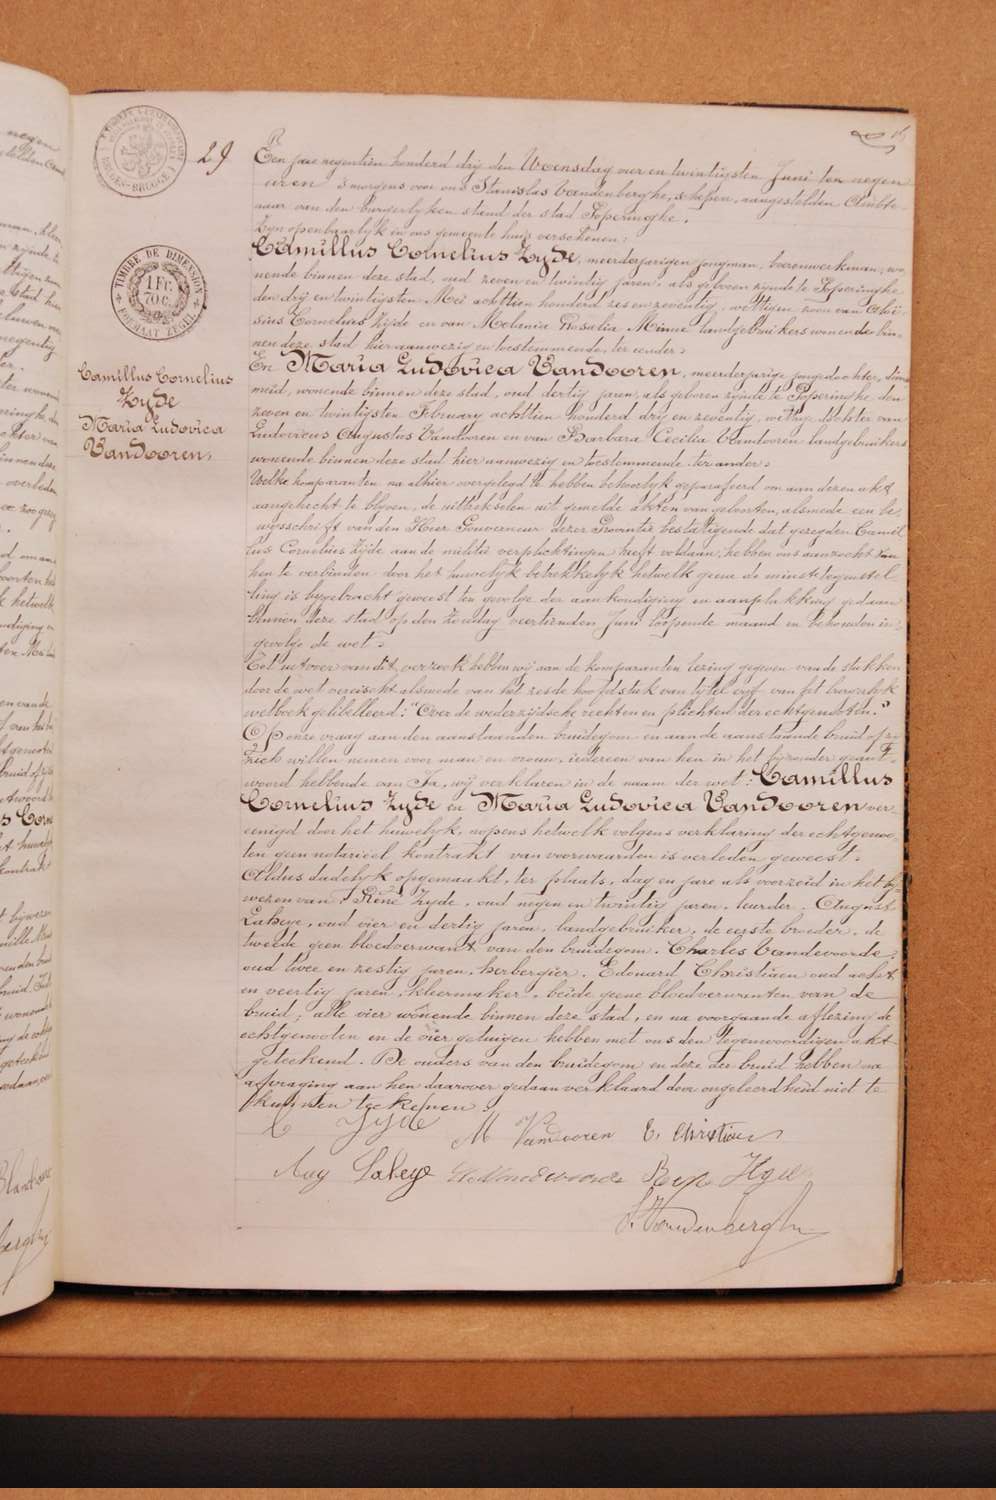 29
TIMBRE DE DIMENSION
1 FR.
70 C.
FORMAAT ZEGEL
BRUGES-BRUGGE
Camillus Cornelius
Zyde
Maria Ludovica
Vandooren,
Een jare negentien honderd drij den Woensdag vier en twintigsten Juni ten negen
uren 's morgens voor ons Stanislas Vandenberghe, schepen, aangestelden Ambte-
naar van den burgerlyken stand der stad Poperinghe,
Zyn openbaarlyk in ons gemeente huis verschenen:
Camillus Cornelius Zyde, meerderjarigen jongman, boerenwerkman, wo-
nende binnen deze stad, oud zeven en twintig jaren, als geboren zynde te Poperinghe
den drij en twintigsten Mei achttien honderd zes en zeventig, wettigen zoon van Aloï-
sius Cornelius Zyde en van Melania Rosalia Minne landgebruikers wonende bin-
nen deze stad hier aanwezig en toestemmende, ter eender.
En Maria Ludovica Vandooren, meerderjarige jongedochter, dienst
meid, wonende binnen deze stad, oud dertig jaren, als geboren zynde te Poperinghe den
zeven en twintigsten February achttien honderd drij en zeventig, wettige dochter van
Ludovicus Augustus Vandooren en van Barbara Cecilia Vandooren landgebruikers
wonende binnen deze stad hier aanwezig en toestemmende ter ander.
Welke komparanten na alhier overgelegd te hebben behoorlyk geparafeerd om aan dezen akt
aangehecht te blyven, de uittreksels uit gemelde akten van geboorten, alsmede een be-
wysschrift van den Heer Gouverneur dezer Provintie bestatigende dat gezegden Camil-
lus Cornelius Zyde aan de militie verplichtingen heeft voldaan, hebben ons aanzocht van
hen te verbinden door het huwelyk betrekkelyk hetwelk geene de minste tegenstel-
ling is bygebracht geweest ten gevolge der aankondiging en aanplakking gedaan
binnen deze stad op den Zondag veertienden Juni loopende maand en behouden in-
gevolge de wet.
Tot uitvoer van dit verzoek hebben wij aan de komparanten lezing gegeven van de stukken
door de wet vereischt alsmede van het zesde hoofdstuk van tytel vyf van het burgerlyk
wetboek gelibelleerd: "Over de wederzijdsche rechten en plichten der echtgenooten."
Op onze vraag aan den aanstaanden bruidegom en aan de aanstaande bruid of zy
zich willen nemen voor man en vrouw, iedereen van hen in het byzonder geant-
woord hebbende van Ja, wij verklaren in de naam der wet: Camillus
Cornelius Zyde en Maria Ludovica Vandooren ver-
eenigd door het huwelyk, nopens hetwelk volgens verklaring der echtgenoo-
ten geen notarieel kontrakt van voorwaarden is verleden geweest.
Aldus dadelyk opgemaakt, ter plaats, dag en jare als voorzeid in het by-
wezen van René Zyde, oud negen en twintig jaren, leurder, August
Laheye, oud vier en dertig jaren, landgebruiker, de eerste broeder, de
tweede geen bloedverwant van den bruidegom. Charles Vandevoorde,
oud twee en zestig jaren, herbergier. Edouard Christiaen oud acht
en veertig jaren, kleermaker, beide geene bloedverwanten van de
bruid; alle vier wonende binnen deze stad, en na voorgaande aflezing de
echtgenooten en de vier getuigen hebben met ons den tegenwoordigen akt
geteekend. De ouders van den bruidegom en deze der bruid hebben na
afvraging aan hen daarover gedaan verklaard door ongeleerdheid niet te
kunnen teekenen.
C Zyde M Vandooren E. Christiaen
Aug Laheye
S. Vandenberghe